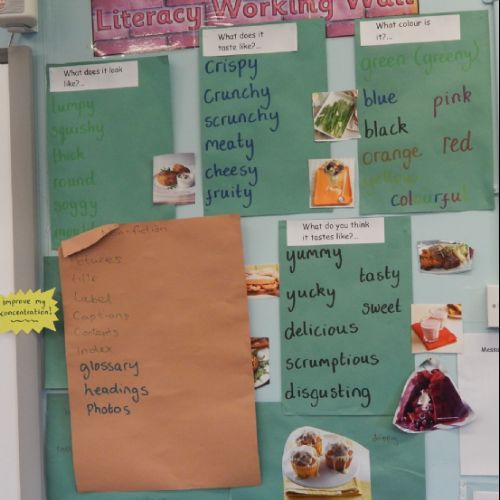 Literacy Working Wall
What does it look
like?...
lumpy
squishy
thick
round
soggy
What does it
taste like?...
Crispy
Crunchy
scrunchy
meaty
cheesy
fruity
What colour is
it?...
green (greeny)
blue
pink
black
orange
red
yellow
colourful
non-fiction
title
Label
Captions
Contents
Index
glossary
headings
Photos
What do you think
it tastes like?...
yummy
tasty
yucky
sweet
delicious
scrumptious
disgusting
improve my
concentration!